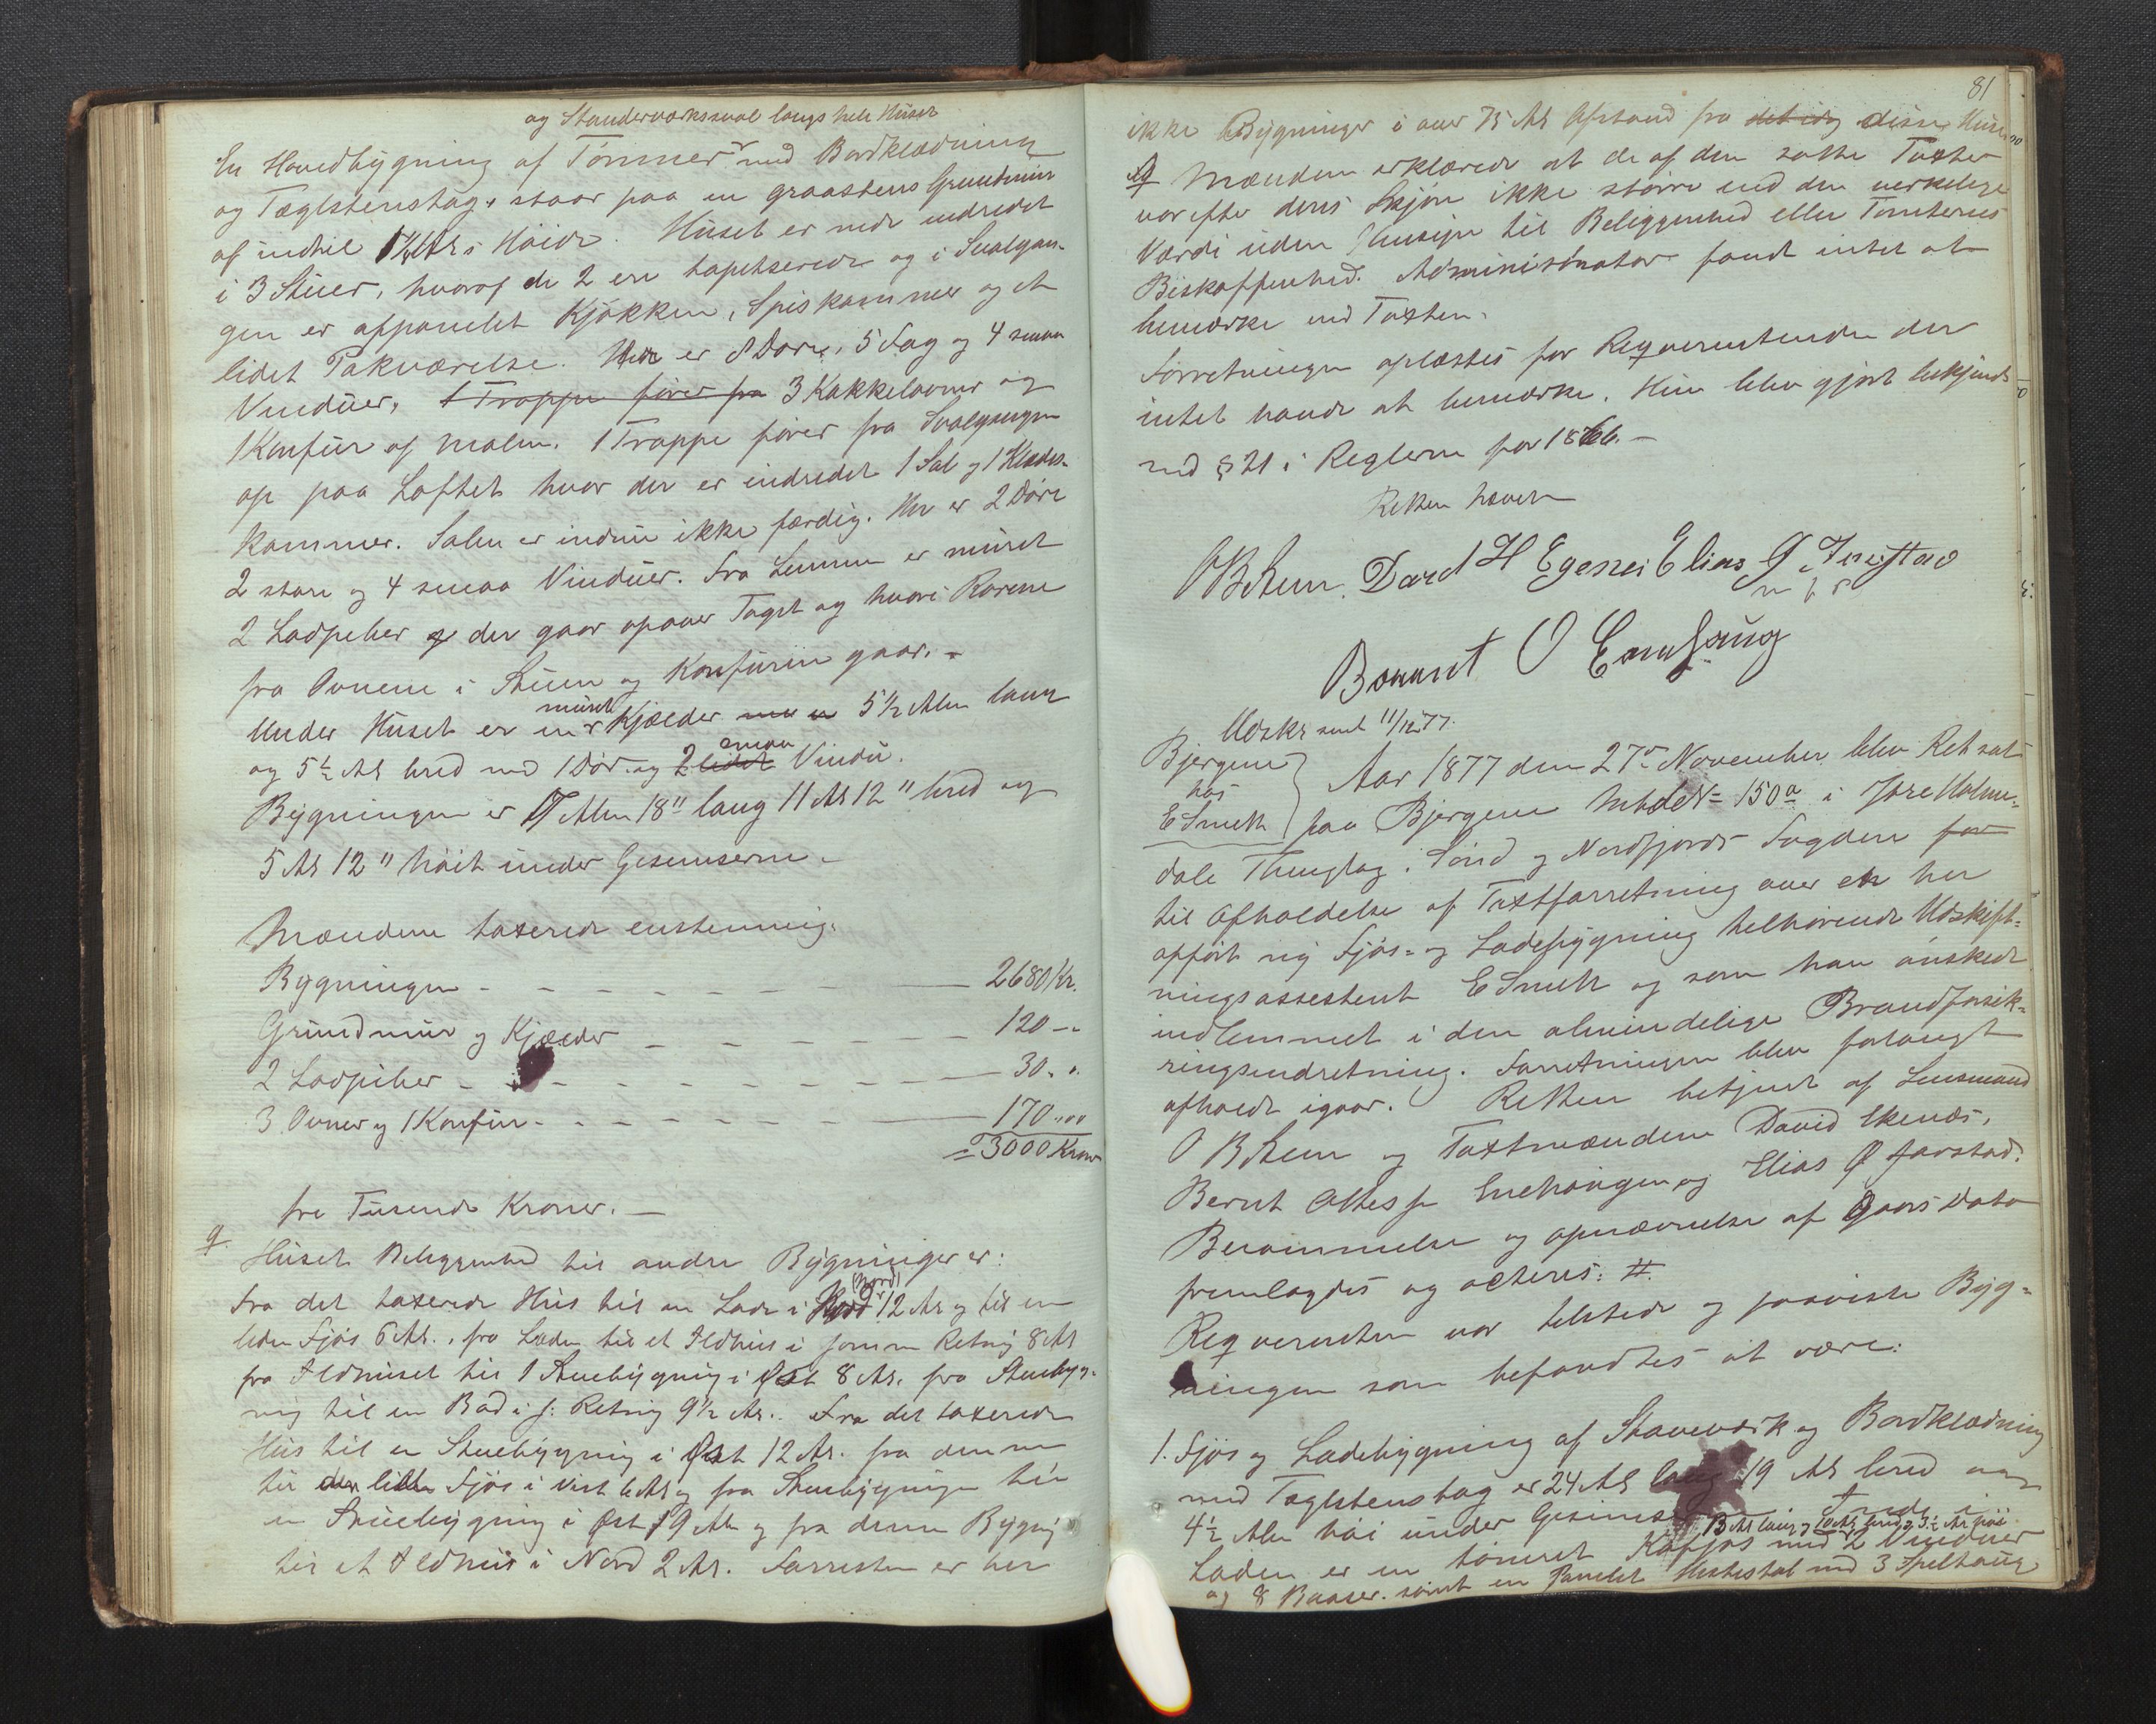 og Standerværkssval langs hele Huset
En Hovedbygning af Tømmer med Bordklædning
og Taglstenstag, staar paa en graastens Grundmur
af indtil 1½ Al. i Høide. Huset er nede indredet
i 3 Stuer, hvoraf de 2 ere tapetserede og i Svalgan-
gen er afpanelet Kjøkken, Spiskammer og et
lidet Pakværelse. Her er 8 Døre, 5 Fag og 4 smaa
Vinduer, 1 Trappe fører fra 3 Kakkelovner og
1 Komfur af Malm. 1 Trappe fører fra Svalgangen
op paa Loftet hvor der er indredet 1 Sal og 1 Klædes-
kammer. Salen er endnu ikke færdig. Her er 2 Døre
2 store og 4 smaa Vinduer. Fra Lemmen er muret
2 Ladpiber og der gaar opover Taget og hvori Rørene
fra Ovnene i Stuen og Komfuren gaar. -
Under Huset er en muret Kjælder 5½ Alen lang
og 5½ Al. bred med 1 Dør og 2 lidet smaa Vindu.
Bygningen er 17 Alen 18" lang 11 Al 12" bred og
5 Al 12" høit under Gesimserne.
Mændene taxerede enstemmig:
Bygningen - - - - - - - 2680 Kr.
Grundmur og Kjælder - - - - - - 120 - "
2 Ladpiber - - - - - - - - - 30 - "
3 Ovner og 1 Komfur - - - - - - - 170 - 00
= 3000 Kroner
tre Tusende Kroner. -
g.
Husets Beliggenhed til andre Bygninger er:
Fra det taxerede Hus til en Lade i Nord (Nord) 12 Al og til en
liden Fjøs 6 Al., fra Laden til et Ildhus i samme Retning 8 Al
fra Ildhuset til 1 Stuebygning i Øst 8 Al. fra Stuebyg-
ning til en Bod i s: Retning 9½ Al. Fra det taxerede
Hus til en Stuebygning i Øst 12 Al. fra denne
til den lille Fjøs i Vest 6 Al og fra Stuebygningen til
en Stuebygning i Øst 19 Alen og fra denne Bygning
til et Ildhus i Nord 2 Al. Forresten er her
81
ikke Bygninger i over 75 Al Afstand fra det idag disse Huse
Mændene erklærede at de af dem satte Taxter
var efter deres Skjøn ikke større end den verkelige
Værdi uden Hensyn til Beliggenhed eller Tomternes
Beskaffenhed. Administrator fandt intet at
bemærke ved Taxten.
Forretningen oplæstes for Reqverentinden der
intet havde at bemærke. Hun blev gjort bekjendt
med § 21 i Reglerne for 1866. -
Retten hævet
David H Egenes Elias Ø
m p P
Udskr sendt 11/12 77.
Bjergene
hos
E Smeth
Aar 1877 den 27de November blev Ret sat
paa Bjergene Mtrl No 150a i Jøre Holme-
dals Thinglag i Sønd og Nordfjords Fogderi for
til Afholdelse af Taxtforretning over en her
opført ny Fjøs- og Ladebygning tilhørende Udskift-
ningsassistent E Smeth og som han ønskede
indlemmet i den almindelige Brandforsik-
ringsindretning. Forretningen blev forlangt
afholdt igaar. Retten betjent af Lensmand
og Taxtmændene David Ekenæs,
Bernt og Elias Ø
Berammelse og opnævnelse af Gaars Dato
fremlagdes og acteres: #.
Reqverenten var tilstede og paaviste Byg-
ningen som befandtes at være:
1. Fjøs og Ladebygning af Staveværk og Bordklædning
med Taglstenstag er 24 Al lang 19 Al bred og
4½ Alen høi under Gesimserne. Inde i
13 Al lang, 10 Al bred og 3½ Al høi
Laden er en tømret Kofjøs med 2 Vinduer
og 8 Baaser. samt en Panelet Hestestal med 3 Spiltaug